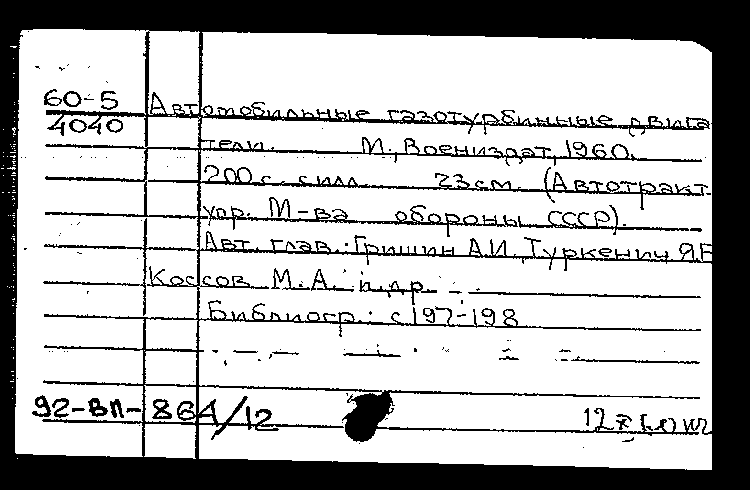 60-5 Автомобильные газотурбинные двига
4040
тели. М., Воениздат, 1960.
200 с. с илл. 23 см. (Автотракт.
упр. М-ва обороны СССР).
Авт. глав.: Гришин А.И., Туркенич Я.Е
Коссов М.А. и др.
Библиогр.: с 197-198
92-ВП-864/12